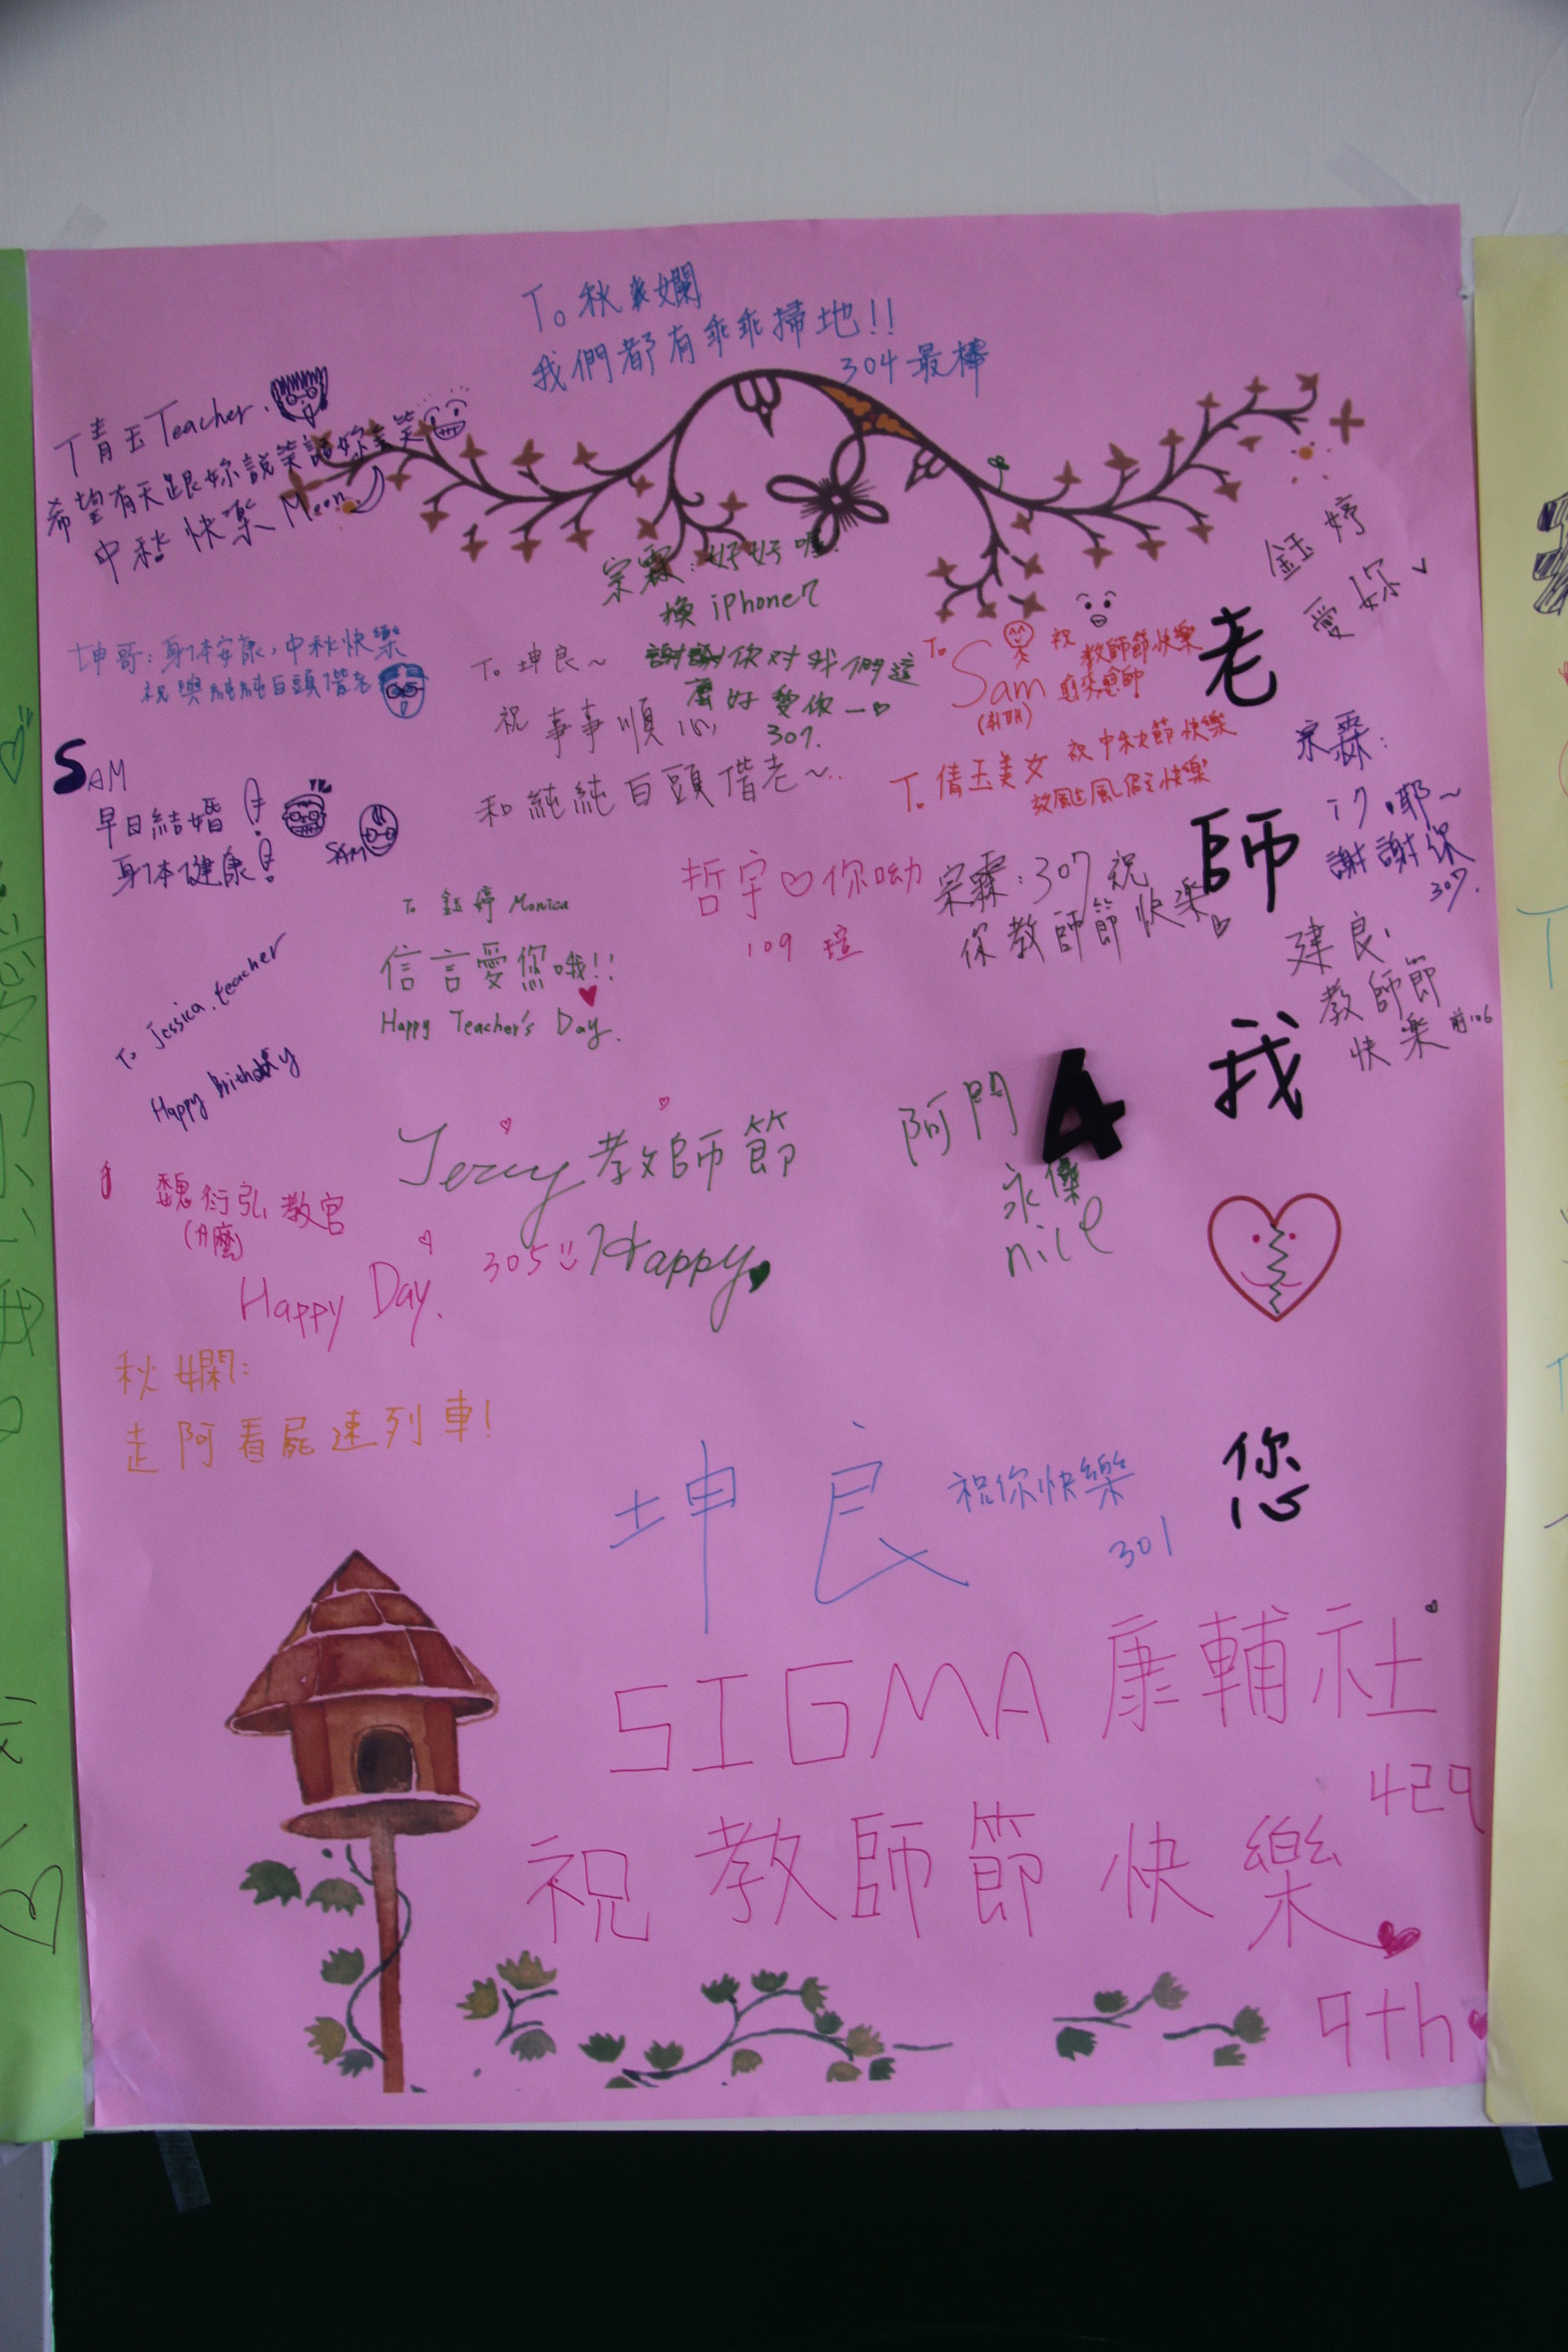 To 秋爽斕
我們都有乖乖掃地!!
304最棒
倩玉Teacher.
希望有天跟妳說笑話妳會笑
中秋快樂 Moon
鈺婷
愛妳
宗霖:好好喔
換iPhone7
謝謝你对我們這
麼好愛你一
307.
坤哥:身体安康,中秋快樂
祝與純純白頭偕老
To 坤良~
祝 事事順心
和純純百頭偕老~..
To Sam 祝
教師節快樂
To 倩玉美女 祝中秋節快樂
放颱風假快樂
SAM
早日結婚
身体健康
SAM
宗霖:
i7.耶~
謝謝你
307.
哲宇♡你呦
109 瑄
宗霖:307祝
你教師節快樂
To 鈺婷 Monica
信言愛您哦!!
Happy Teacher's Day.
建良,
教師節
快樂 前106
To Jessica.teacher
Happy brithday
阿門
永傑
nice
Jerry教師節
Happy
305
魏衍弘教官
Happy Day.
秋嫻:
走阿看屍速列車!
坤良
祝你快樂
301
老師我4您
SIGMA 康輔社
429
祝教師節快樂
9th